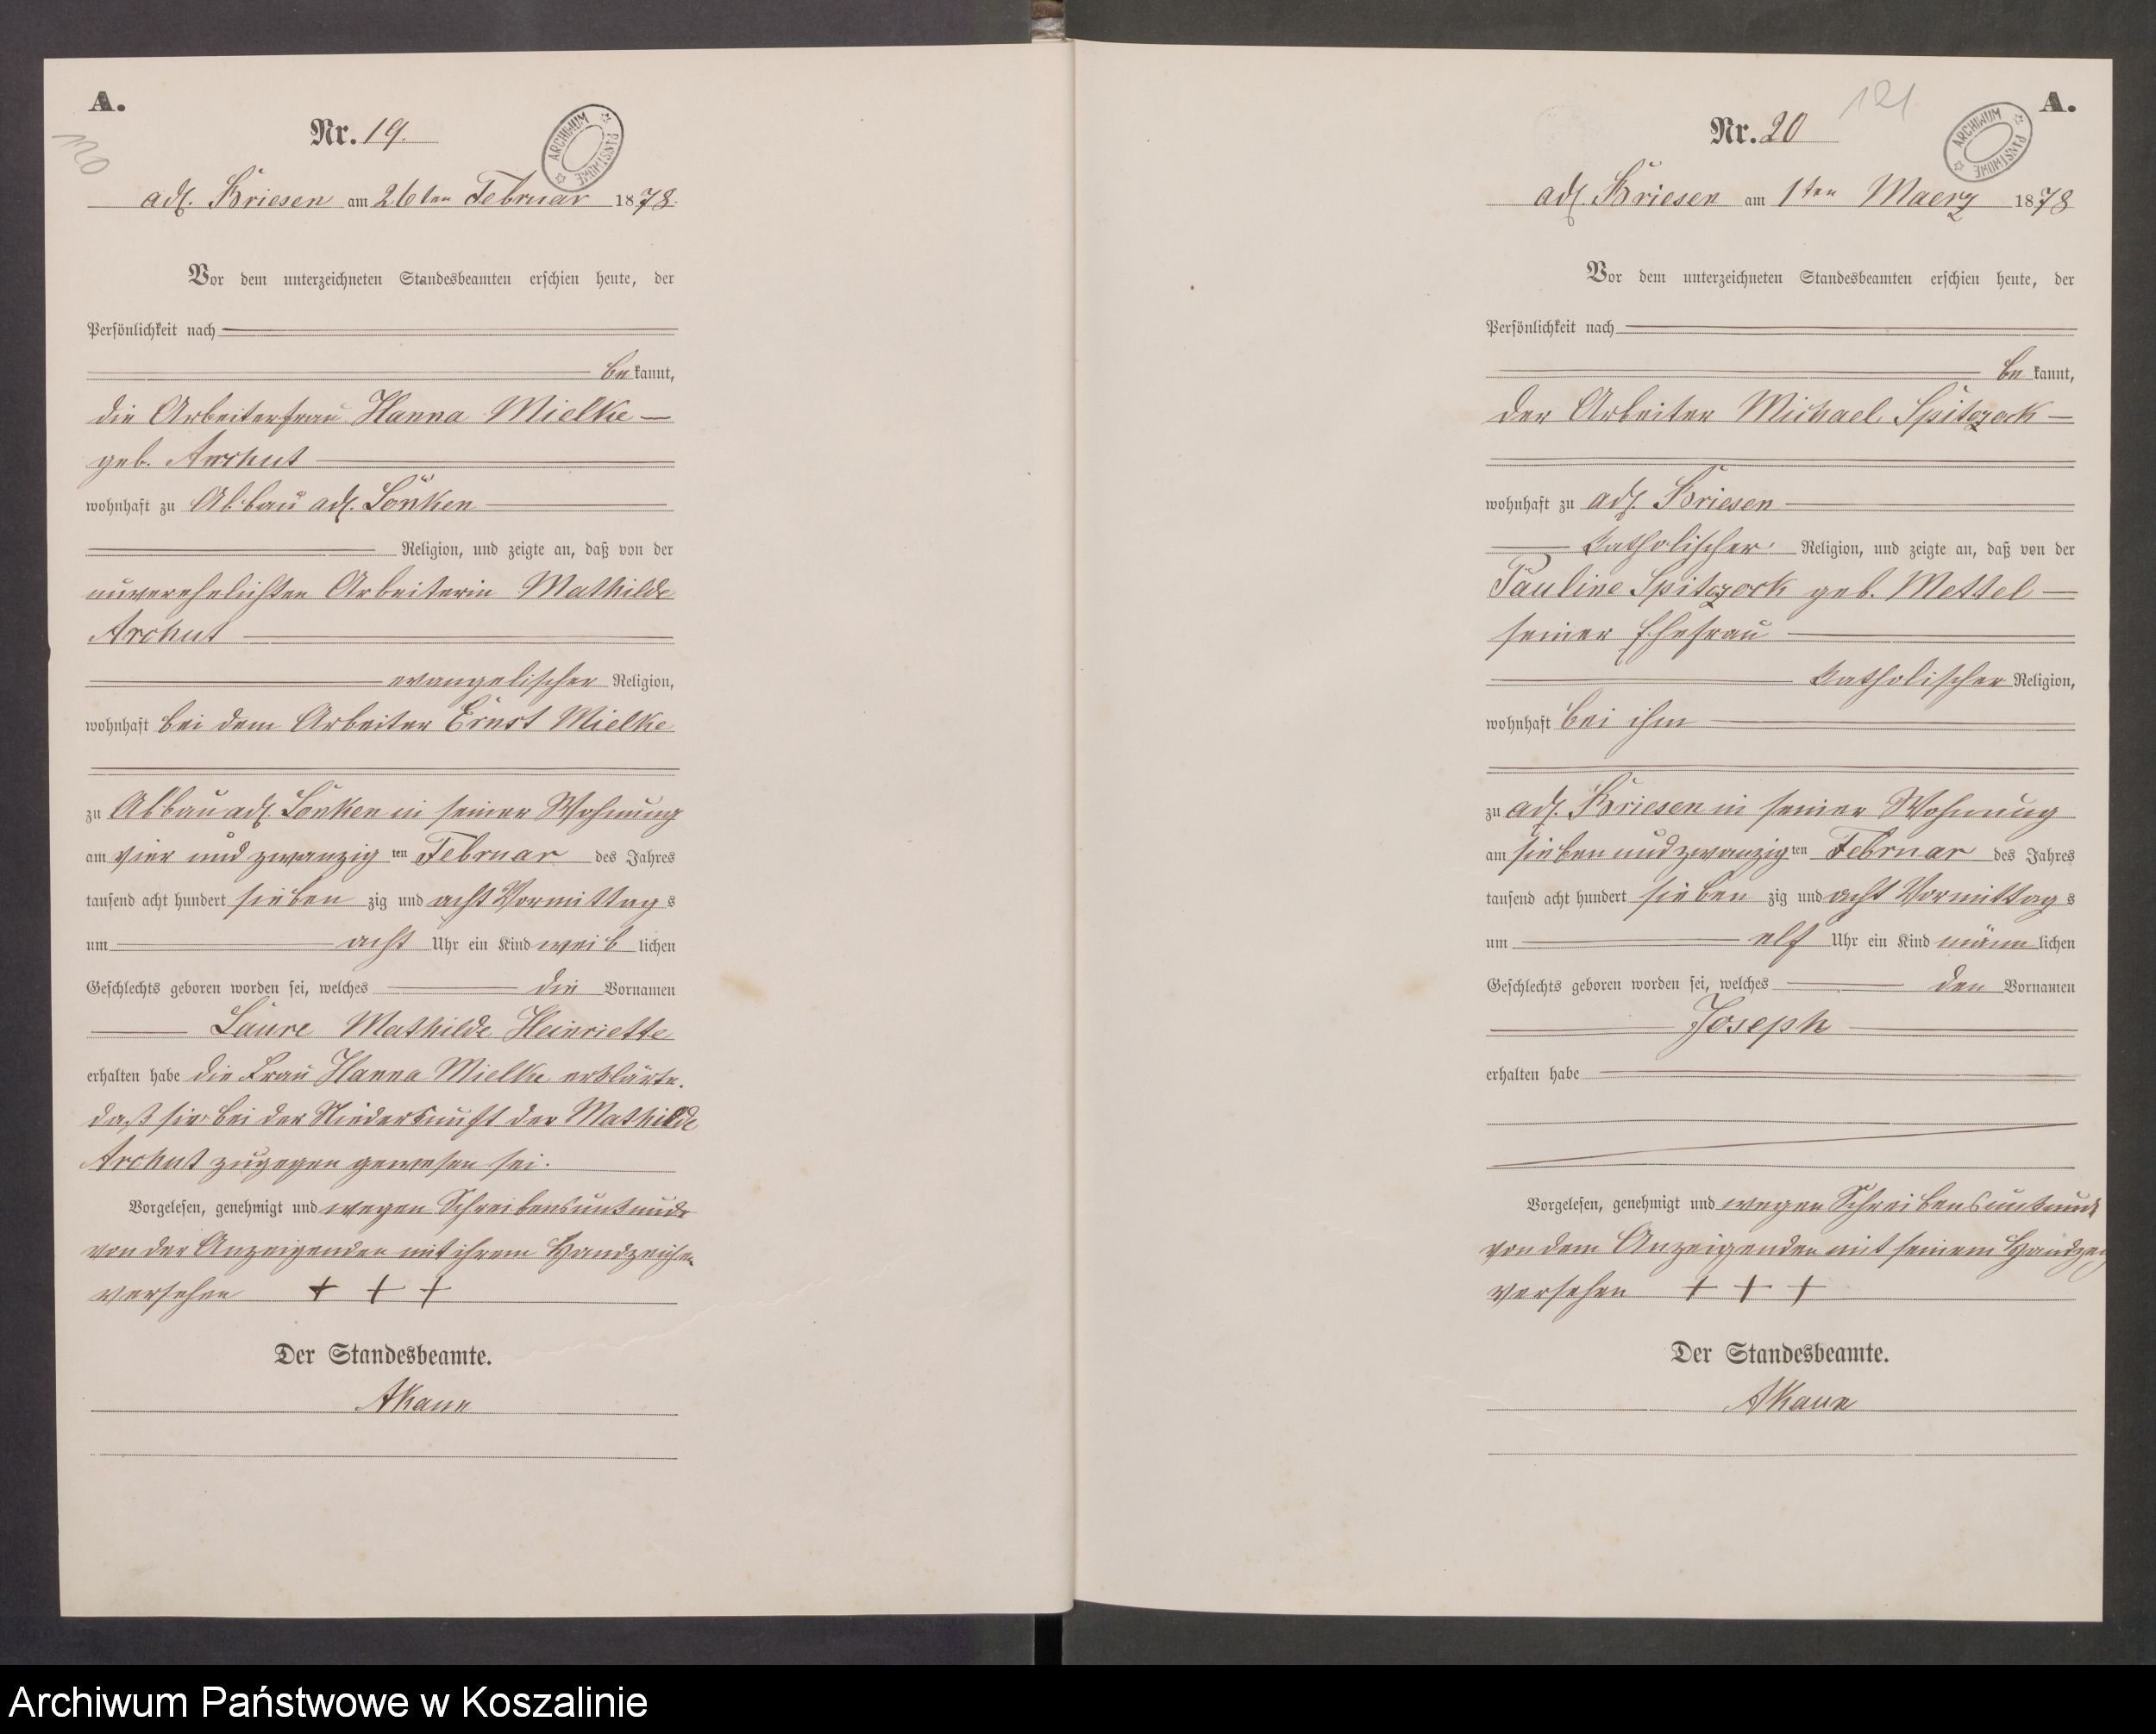 A.
120
Nr. 19.
ARCHIWUM PAŃSTWOWE
adl. Briesen am 26ten Februar 1878.
Vor dem unterzeichneten Standesbeamten erschien heute, der
Persönlichkeit nach
bekannt,
die Arbeiterfrau Hanna Mielke
geb. Archut
wohnhaft zu Abbau adl. Lonken
Religion, und zeigte an, daß von der
unverehelichten Arbeiterin Mathilde
Archut
evangelischer Religion,
wohnhaft bei dem Arbeiter Ernst Mielke
zu Abbau adl. Lonken in seiner Wohnung
am vier und zwanzig ten Februar des Jahres
tausend acht hundert sieben zig und acht Vormittags
um acht Uhr ein Kind weiblichen
Geschlechts geboren worden sei, welches die Vornamen
Laure Mathilde Heinriette
erhalten habe die Frau Hanna Mielke erklärte.
daß sie bei der Niederkunft der Mathilde
Archut zugegen gewesen sei.
Vorgelesen, genehmigt und wegen Schreibensunkunde
von der Anzeigenden mit ihrem Handzeichen
versehen + + +
Der Standesbeamte.
121
A.
Nr. 20
ARCHIWUM PAŃSTWOWE
adl. Briesen am 1ten Maerz 1878
Vor dem unterzeichneten Standesbeamten erschien heute, der
Persönlichkeit nach
bekannt,
der Arbeiter Michael Spitczack
wohnhaft zu adl. Briesen
katholischer Religion, und zeigte an, daß von der
Pauline Spitczock geb. Mettel
seiner Ehefrau
katholischer Religion,
wohnhaft bei ihm
zu adl. Briesen in seiner Wohnung
am sieben und zwanzig ten Februar des Jahres
tausend acht hundert sieben zig und acht Vormittags
um elf Uhr ein Kind männlichen
Geschlechts geboren worden sei, welches den Vornamen
Joseph
erhalten habe
Vorgelesen, genehmigt und wegen Schreibensunkunde
von dem Anzeigenden mit seinem
versehen + + +
Der Standesbeamte.
Archiwum Państwowe w Koszalinie